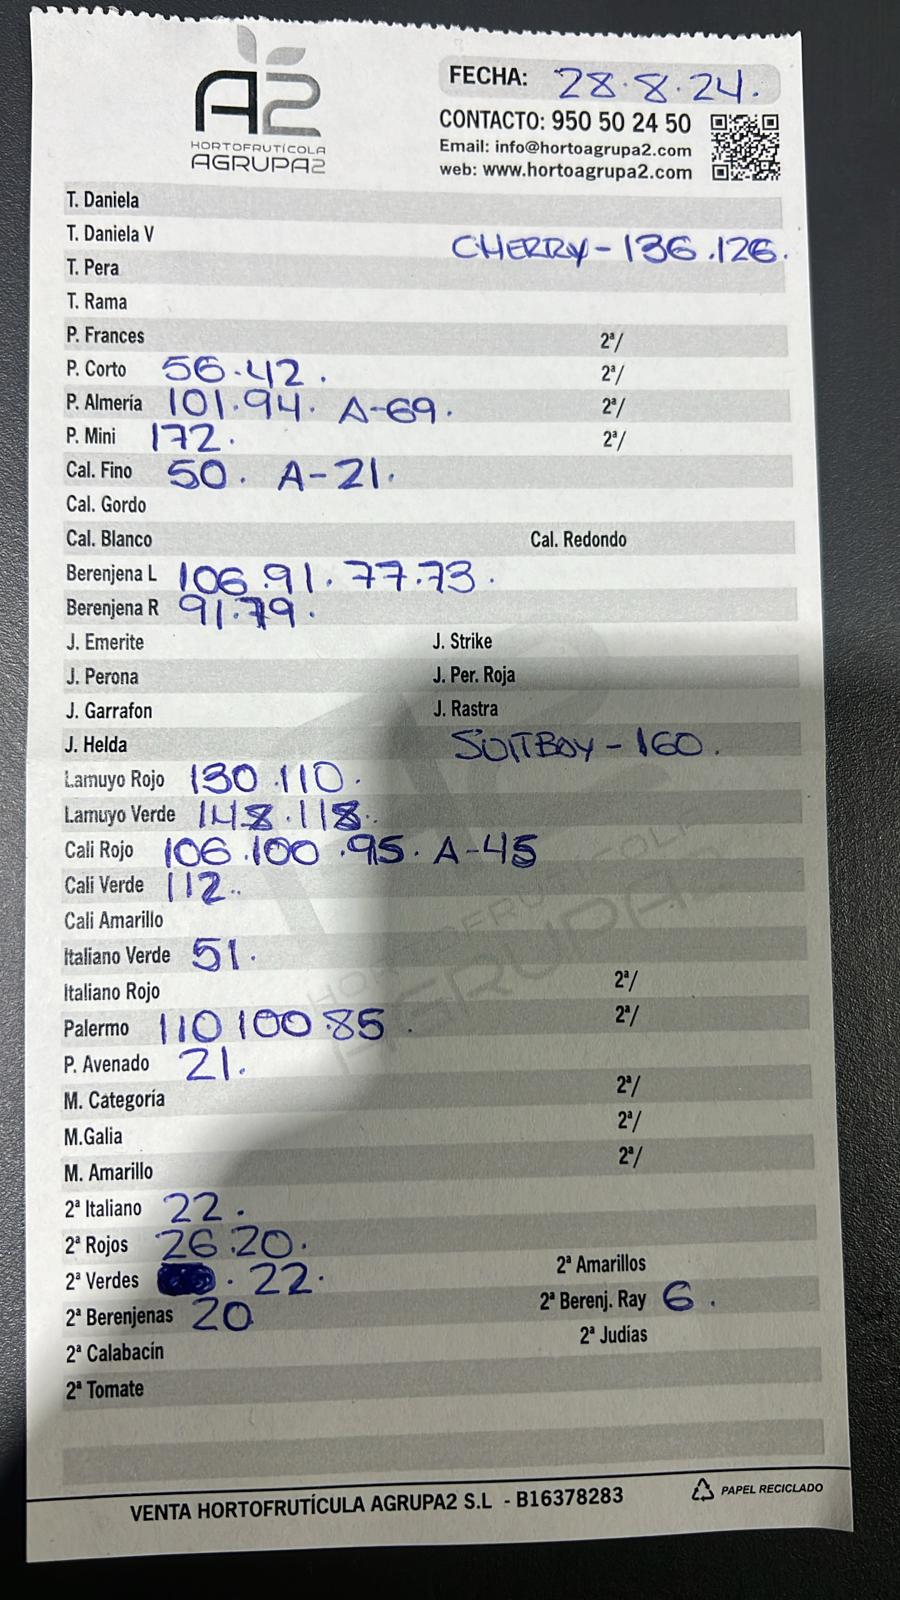 A2
HORTOFRUTÍCOLA
AGRUPA2
FECHA: 28.8.24.
CONTACTO: 950 50 24 50
Email: info@hortoagrupa2.com
web: www.hortoagrupa2.com
T. Daniela
T. Daniela V
CHERRY - 136.126.
T. Pera
T. Rama
P. Frances 2ª/
P. Corto 56.42. 2ª/
P. Almería 101.94. A-69. 2ª/
P. Mini 172. 2ª/
Cal. Fino 50. A-21.
Cal. Gordo
Cal. Blanco Cal. Redondo
Berenjena L 106.91.77.73.
Berenjena R 91.79.
J. Emerite J. Strike
J. Perona J. Per. Roja
J. Garrafon J. Rastra
J. Helda SUITBOY - 160.
Lamuyo Rojo 130.110.
Lamuyo Verde 148.118.
Cali Rojo 106.100.95. A-45
Cali Verde 112..
Cali Amarillo
Italiano Verde 51.
Italiano Rojo 2ª/
Palermo 110 100.85. 2ª/
P. Avenado 21.
M. Categoría 2ª/
M.Galia 2ª/
M. Amarillo 2ª/
2ª Italiano 22.
2ª Rojos 26.20.
2ª Verdes . 22. 2ª Amarillos
2ª Berenjenas 20 2ª Berenj. Ray 6.
2ª Calabacín 2ª Judías
2ª Tomate
VENTA HORTOFRUTÍCULA AGRUPA2 S.L - B16378283 PAPEL RECICLADO